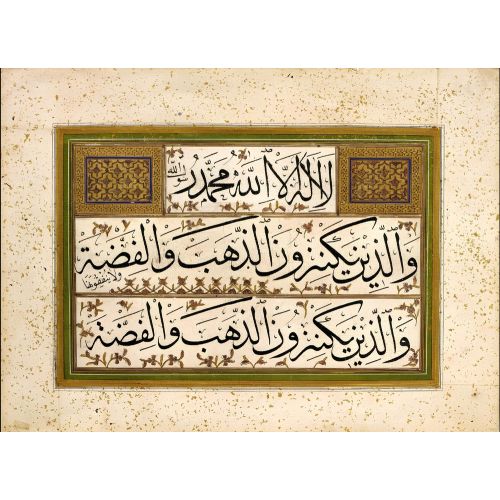 لا اله الا الله محمد رسول الله
والذين يكنزون الذهب والفضة ولا ينفقونها
والذين يكنزون الذهب والفضة